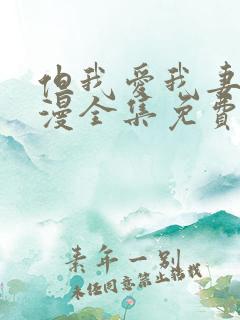 但我愛我妻
漫全集免費
素年一别
未经同意禁止搭载